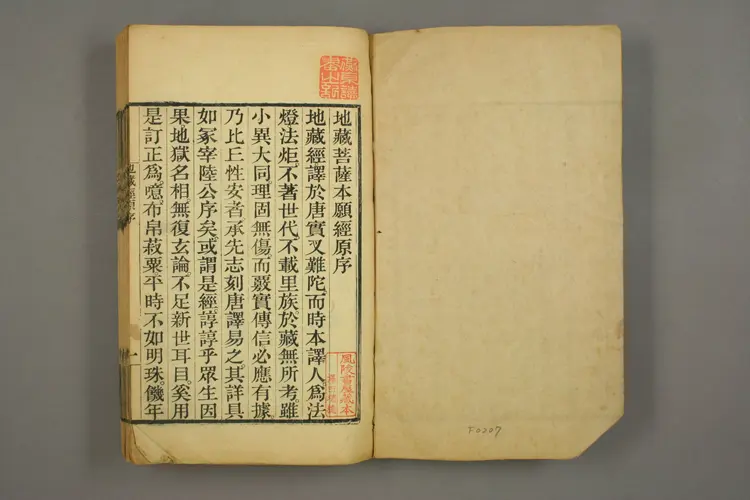 地藏菩薩本願經原序
地藏經譯於唐實叉難陀。而時本譯人爲法
燈法炬。不著世代。不載里族。於藏無所考。雖
小異大同。理固無傷。而覈實傳信。必應有據。
乃比丘性安者。承先志刻唐譯易之。其詳具
如冢宰陸公序矣。或謂是經諄諄乎眾生因
果地獄名相。無復玄論。不足新世耳目。奚用
是訂正爲。噫。布帛菽粟。平時不如明珠。饑年
地藏經原序
一
風陵書屋藏本
F0207